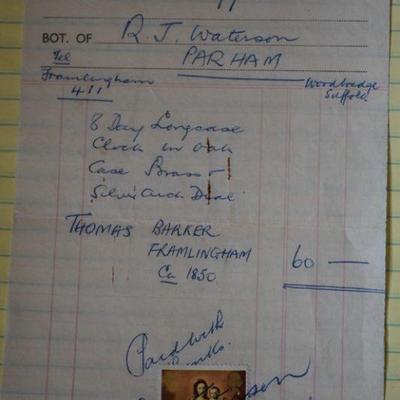 BOT. OF R. J. Waterson
PARHAM
Tel Framlingham 411
Woodbridge Suffolk
8 Day Longcase
Clock in Oak
Case Brass +
Silver Arch Dial
THOMAS BARKER
FRAMLINGHAM
Ca 1850
60 —
Paid with